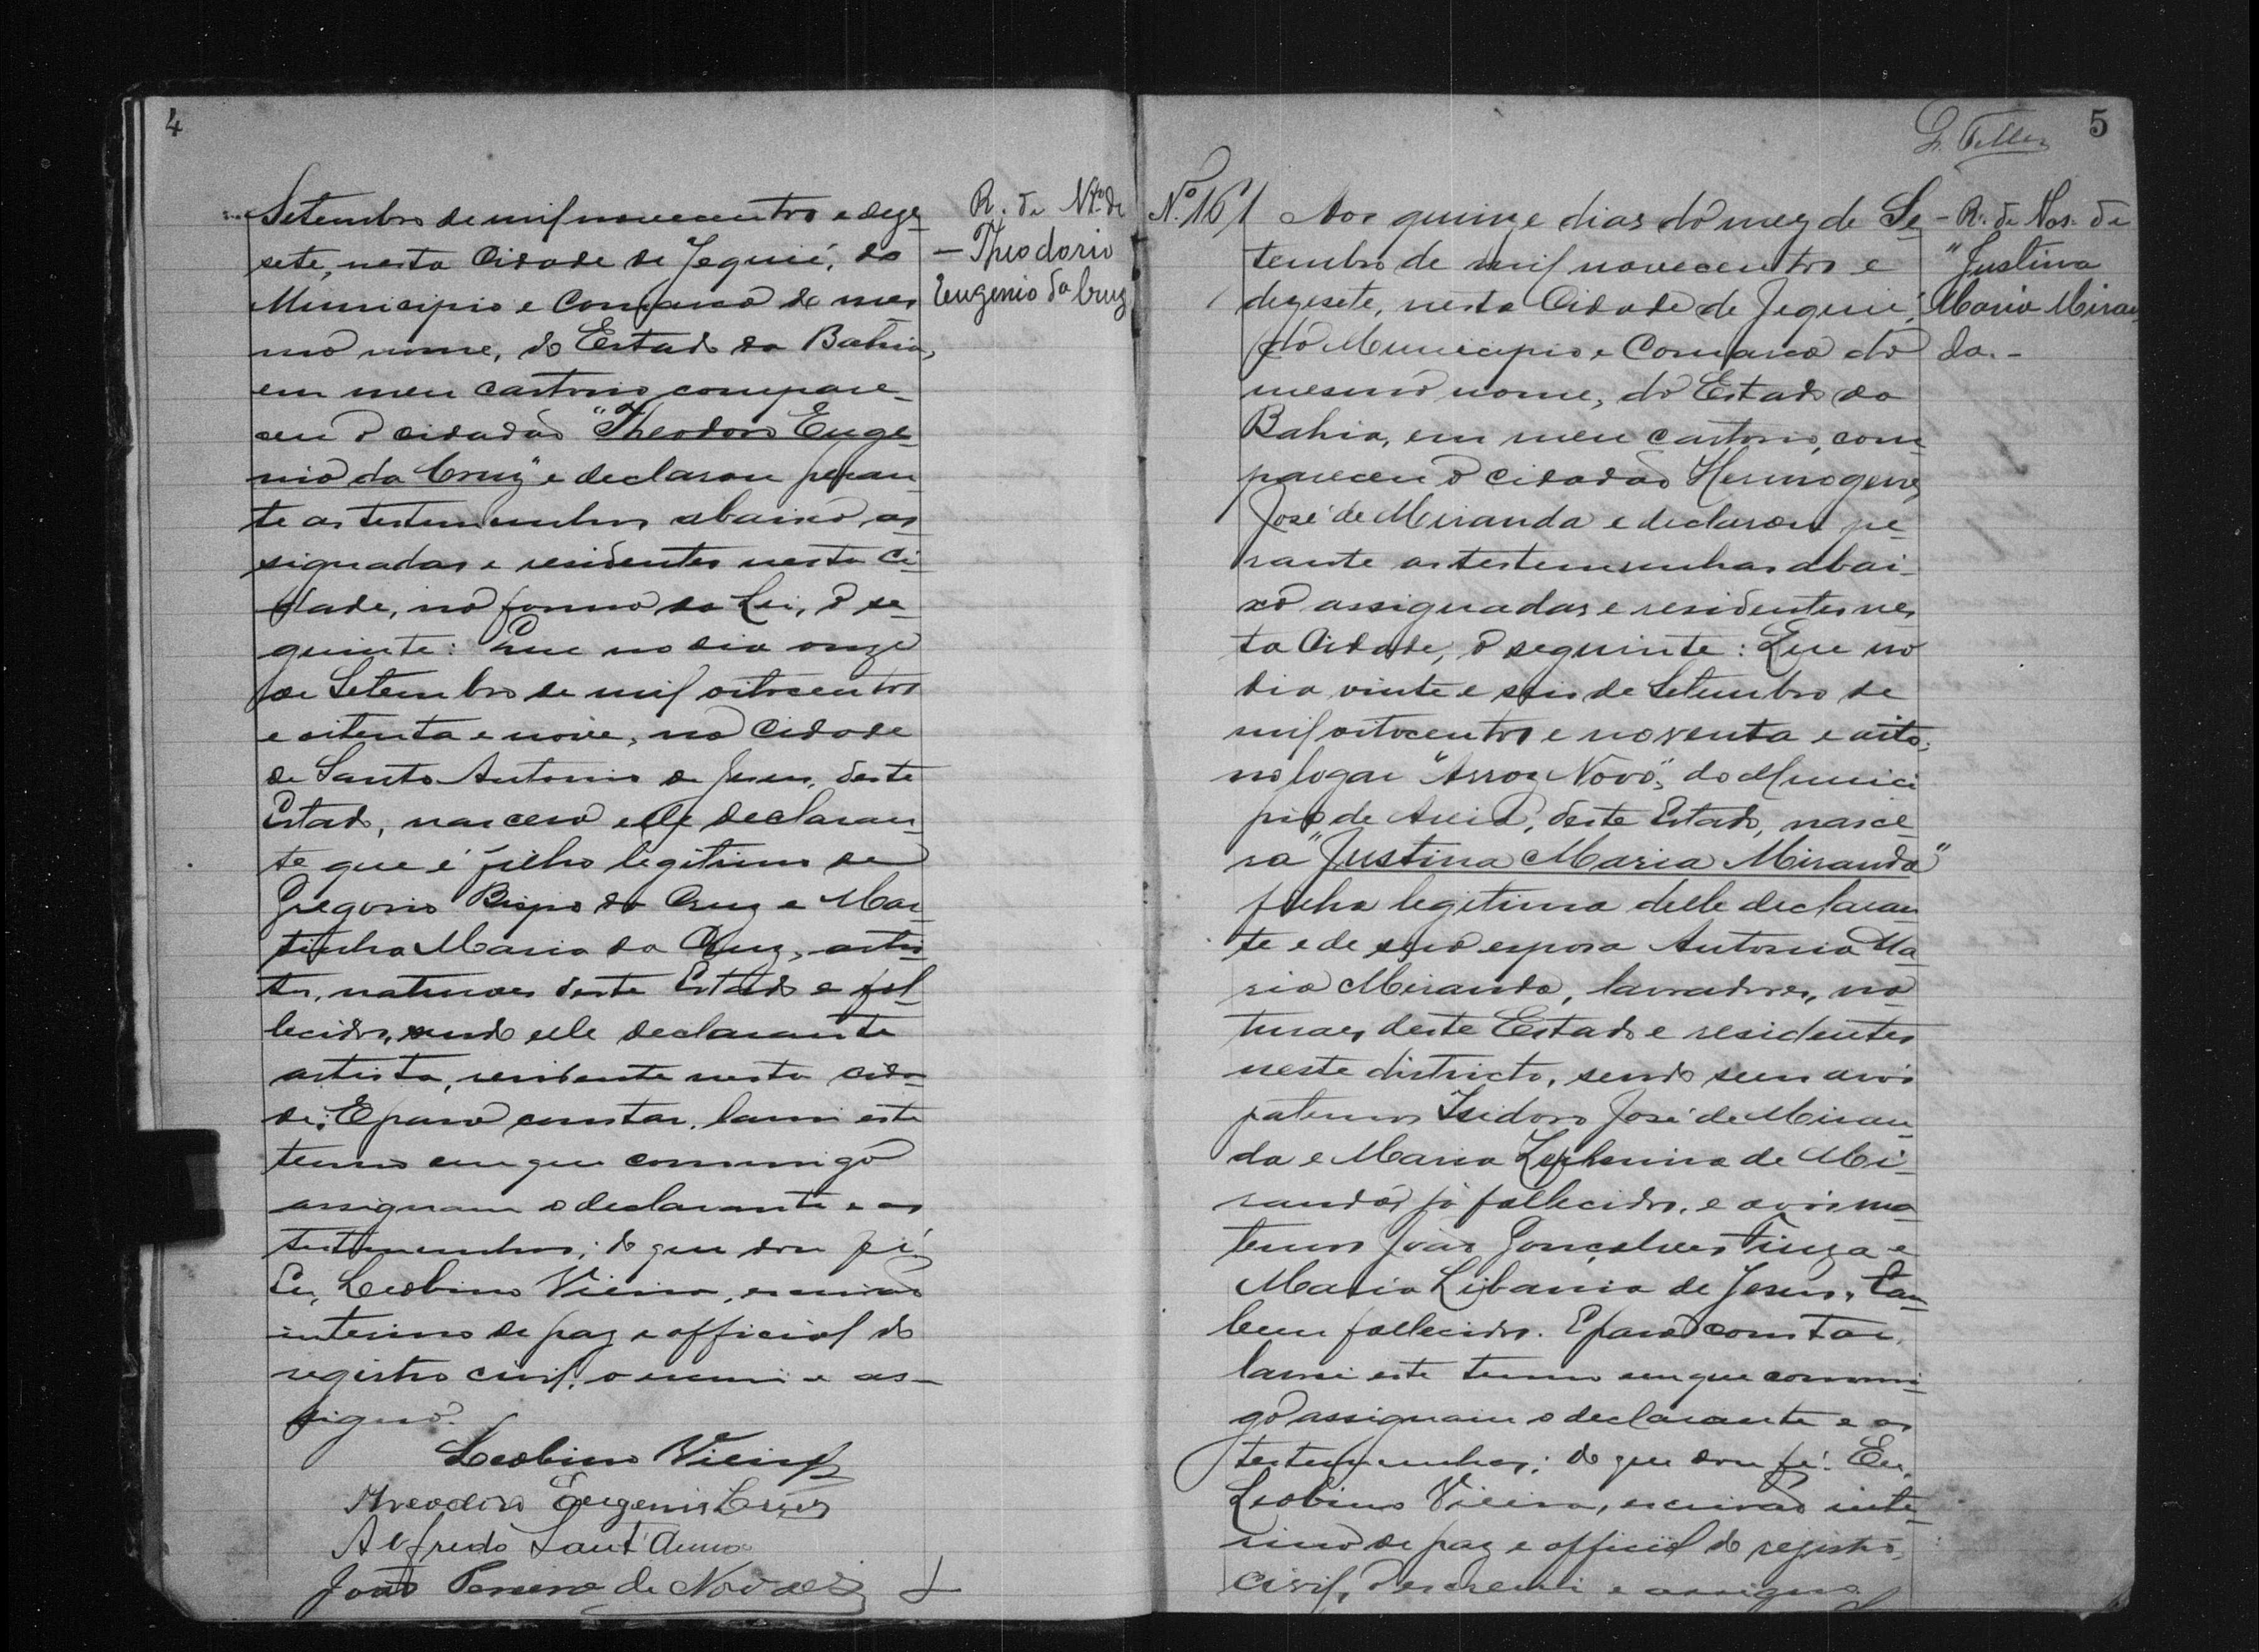 4
Setembro de mil novecentos e deze-
sete, nesta Cidade de Jequié, do
Municipio e Comarca do mes
mo nome, do Estado da Bahia,
em meu cartorio compare-
ceu o cidadão "Theodoro Euge-
nio da Cruz" e declarou peran-
te as testemunhas abaixo as
signadas e residentes nesta Ci-
dade, na forma da Lei, o se-
guinte: Que no dia onze
de Setembro de mil oitocentos
e oitenta e nove, na Cidade
de Santo Antonio de Jesus, deste
Estado, nascera elle declaran-
te que é filho legitimo de
Gregorio Bispo da Cruz e Mar-
tinha Maria da Cruz, artis-
tas, naturaes deste Estado e fal-
lecidos, sendo elle declarante
artista, residente nesta cida-
de. E para constar, lavrei este
termo em que commigo
assignam o declarante e as
testemunhas; do que dou fé.
Eu, Leobino Vieira, escrivão
interino de paz e official do
registro civil, o escrevi e as-
signo.
Leobino Vieira
Theodoro Eugenio Cruz
Alfredo Sant'Anna
João Pereira de Novaes
R. de N.to de
- Theodorio
Eugenio da Cruz
5
Nº 161 Aos quinze dias do mez de Se-
tembro de mil novecentos e
dezesete, nesta Cidade de Jequié,
do Municipio e Comarca do
mesmo nome, do Estado da
Bahia, em meu cartorio, com-
pareceu o cidadão Hermogenes
José de Miranda e declarou pe-
rante as testemunhas abai-
xo assignadas e residentes nes
ta Cidade, o seguinte: Que no
dia vinte e seis de Setembro de
mil oitocentos e noventa e oito,
no logar "Arroz Novo", do Munici
pio de Areia, deste Estado, nasce-
ra "Justina Maria Miranda"
filha legitima delle declaran
te e de sua esposa Antonia Ma-
ria Miranda, lavradores, na-
turaes deste Estado e residentes
neste districto, sendo seus avós
paternos Isidoro José de Miran-
da e Maria de Mi-
randa, já fallecidos, e avós ma-
ternos João Gonçalves e
Maria Libania de Jesus, tam-
bem fallecidos. E para constar,
lavrei este termo em que commi-
go assignam o declarante e as
testemunhas; do que dou fé. Eu,
Leobino Vieira, escrivão inte-
rino de paz e official do registro
civil, o escrevi e assigno
- R. de Nas. de
"Justina
Maria Miran-
da. -